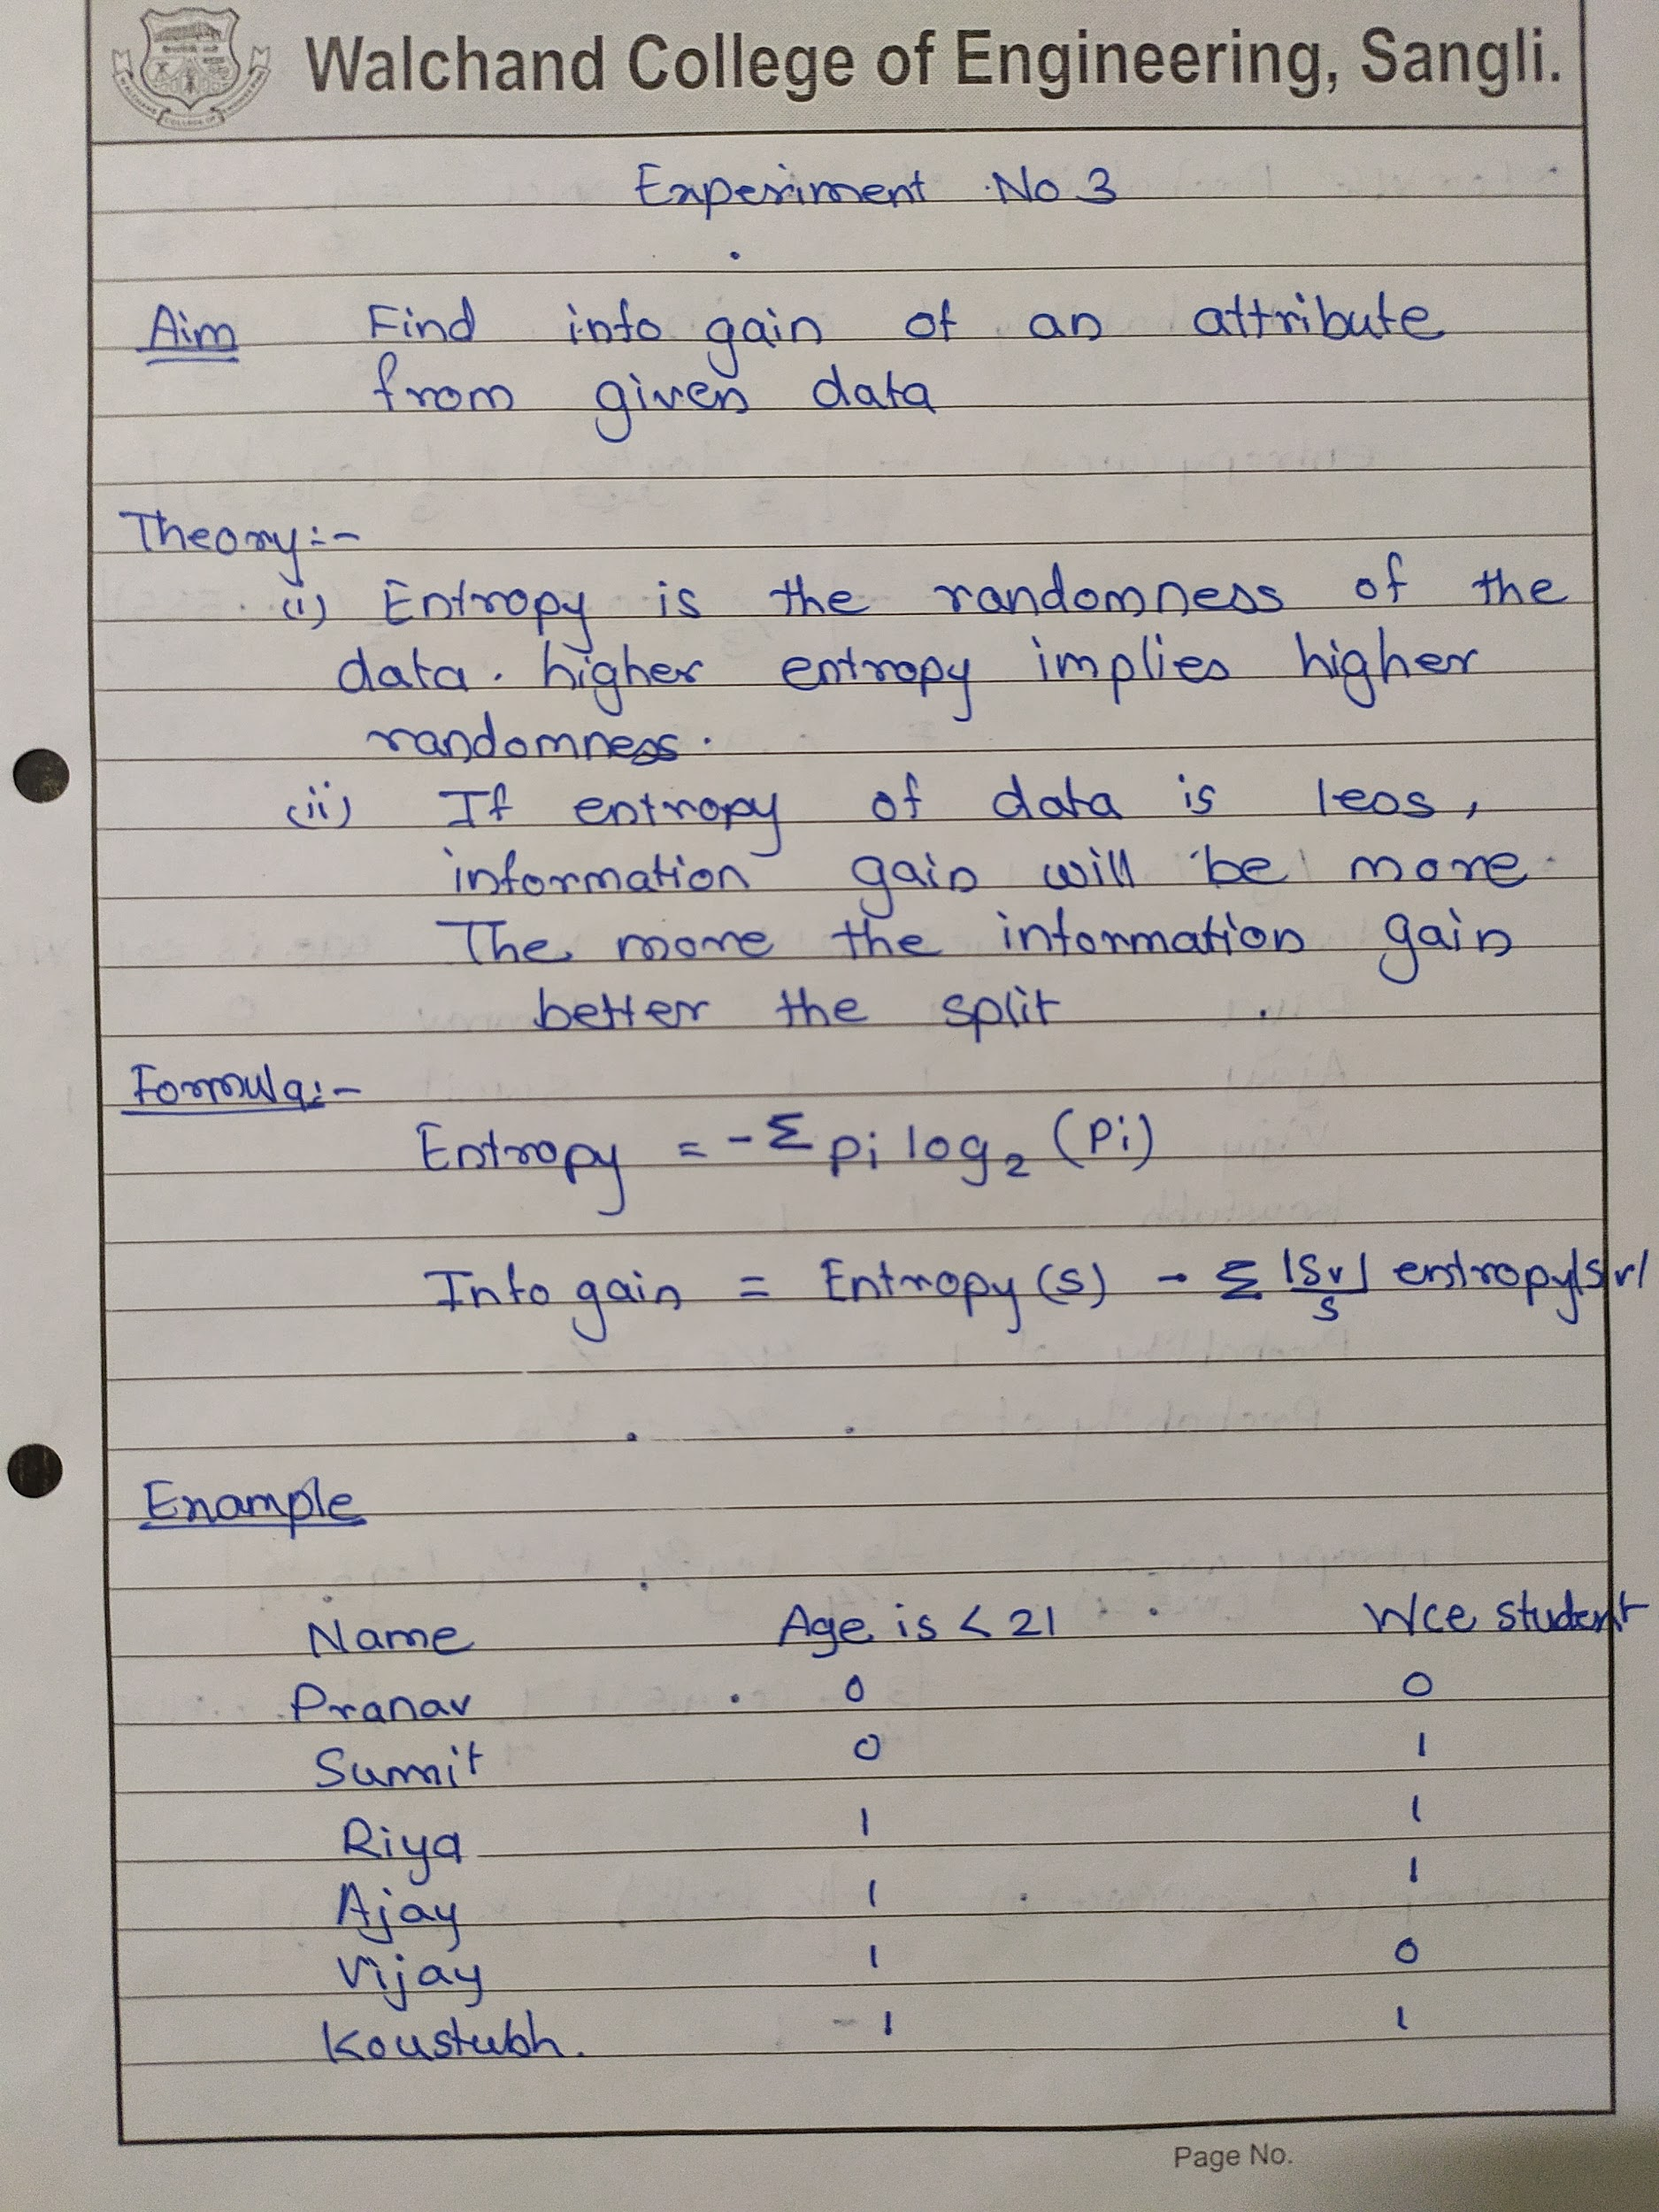 Walchand College of Engineering, Sangli.
Experiment No 3
Aim Find info gain of an attribute
from given data
Theory:-
(i) Entropy is the randomness of the
data. higher entropy implies higher
randomness.
(ii) If entropy of data is less,
information gain will be more
The more the information gain
better the split
Formula:-
Entropy = -Σ pi log₂ (Pi)
Info gain = Entropy (s) - Σ |Sv|/s entropy|s|v|
Example
Name Age is < 21 Wce student
Pranav 0 0
Sumit 0 1
Riya 1 1
Ajay 1 1
Vijay 1 0
Koustubh. 1 1
Page No.